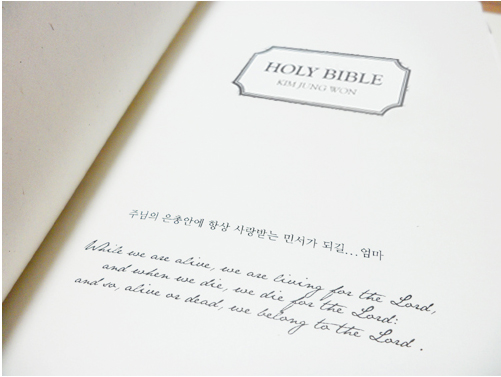 HOLY BIBLE
KIM JUNG WON
주님의 은총안에 항상 사랑받는 민서가 되길...엄마
While we are alive, we are living for the Lord,
and when we die, we die for the Lord:
and so, alive or dead, we belong to the Lord.